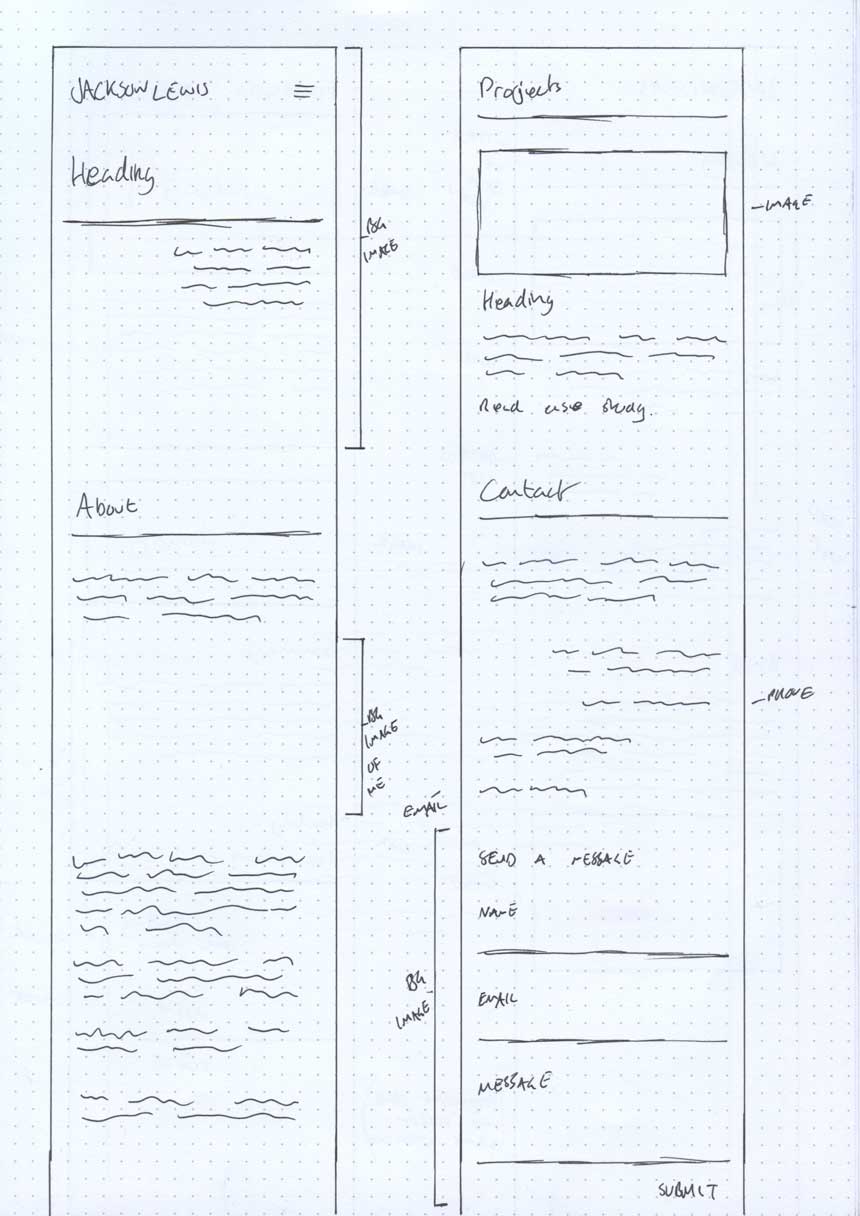 JACKSON LEWIS
Heading
BG
IMAGE
About
BG
IMAGE
OF
ME
Projects
IMAGE
Heading
Read case study.
Contact
PHONE
EMAIL
SEND A MESSAGE
NAME
EMAIL
BG
IMAGE
MESSAGE
SUBMIT